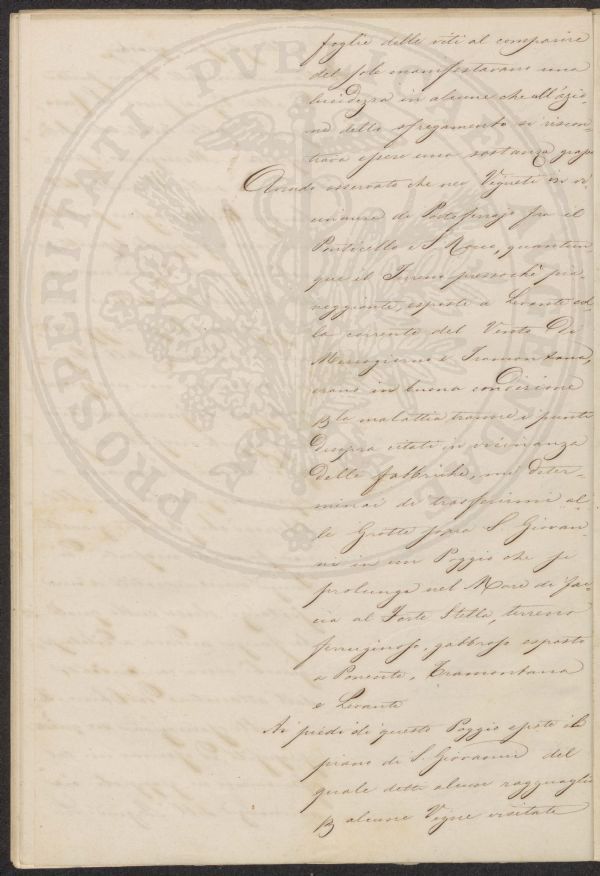 foglie delle viti al comparire
del sole manifestavano una
lucidezza in alcune che all'azio-
ne dello sfregamento si riscon-
trava essere una sostanza grassa
Avendo osservato che nei Vigneti in vi
cinanza di Portoferrajo fra il
Ponticello e S. Rocco, quantun-
que il Terreno pressochè pia-
neggiante, esposto a Levante col-
la corrente del Vento di
Mezzogiorno e Tramontana,
erano in buona condizione
la malattia tranne i punti
di sopra citati in vicinanza
delle fabbriche, mi deter-
minai di trasferirmi al-
le Grotte sopra S. Giovan-
ni in un Poggio che si
prolunga nel Mare di fac-
cia al Forte Stella, terreno
ferruginoso, gabbroso esposto
a Ponente, Tramontana
e Levante
Ai piedi di questo Poggio esiste il
piano di S. Giovanni del
quale detti alcuni ragguagli
alcune Vigne visitate
PROSPERITATI PUBLICAE AUGENDAE